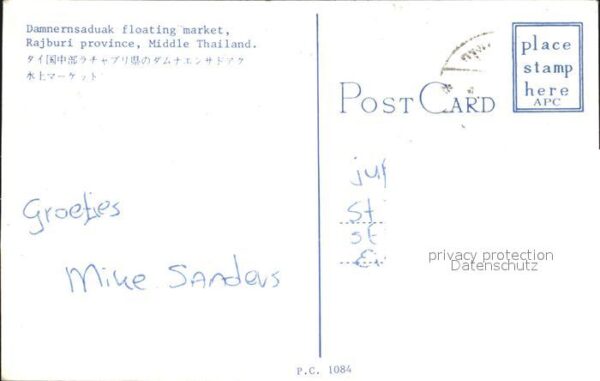 Damnernsaduak floating market,
Rajburi province, Middle Thailand.
タイ国中部ラチャブリ県のダムナエンサドアク
水上マーケット
place
stamp
here
APC
POST CARD
Groetjes
Mike Sanders
St
st
privacy protection
Datenschutz
P.C. 1084